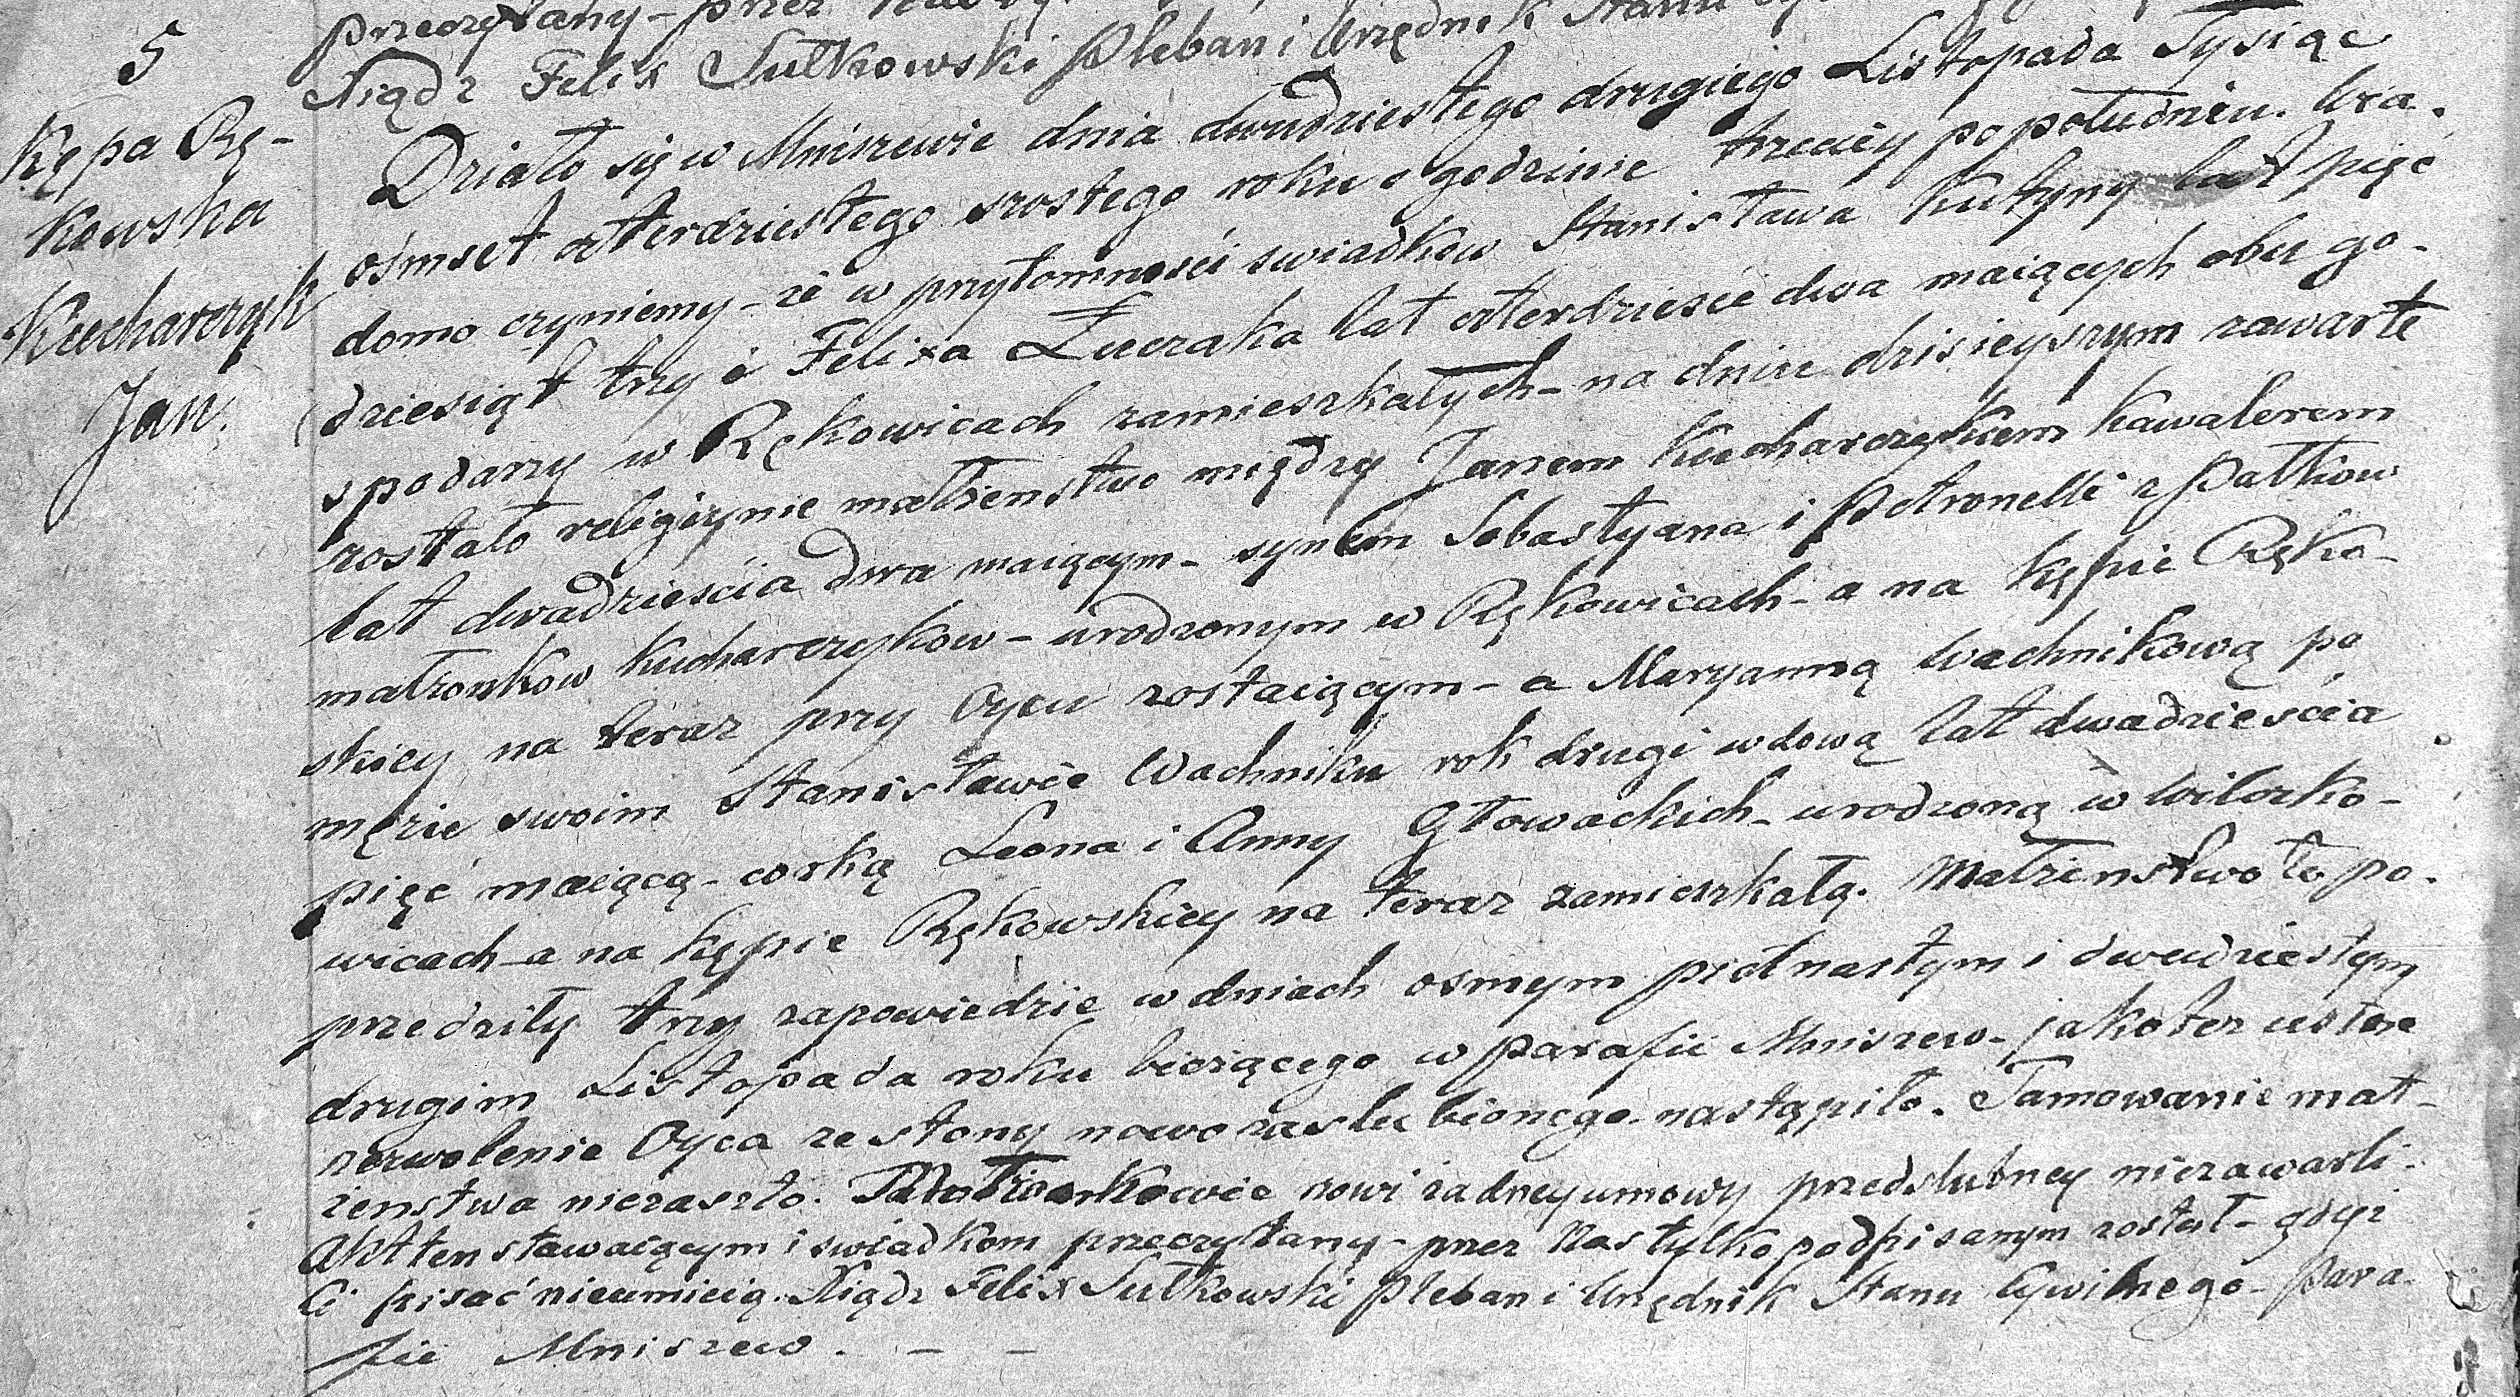 5
Kępa Rę-
kowska
Kucharczyk
Jan.
przeczytany - przez
Xiądz Felix Sułkowski Pleban i Urzędnik Stanu
Działo się w Mniszewie dnia dwudziestego drugiego Listopada Tysiąc
ośmset czterdziestego szostego roku o godzinie trzeciey popołudniu. Wia-
domo czyniemy - że w przytomności swiadkow Stanisława Kutyny lat pięć
dziesiąt trzy i Felixa Łuczaka lat czterdzieście dwa maiących obu go-
spodarzy w Rękowicach zamieszkałych - na dniu dzisieyszym zawarte
zostało religiynie małżenstwo między Janem Kucharczykiem kawalerem
lat dwadzieścia dwa maiącym - synem Sebastyana i Petronelli z Pałkow
małżonkow Kucharczykow - urodzonym w Rękowicach - a na Kępie Ręko-
skiey na teraz przy Oycu zostaiącym - a Maryanną Wachnikową po
mężie swoim Stanisławie Wachniku rok drugi wdową lat dwadzieścia
pięć maiącą - corką Leona i Anny Głowackich - urodzoną w Wilczko-
wicach - a na Kępie Rękowskiey na teraz zamieszkałą. Małżenstwo to po-
przedziły trzy zapowiedzie w dniach osmym piętnastym i dwudziestym
drugim Listopada roku bieżącego w Parafii Mniszew - jakoteż ustne
zezwolenie Oyca ze strony nowozaslubionego nastąpiło. Tamowanie mał-
żenstwa niezaszło. Małżonkowie nowi żadney umowy przedslubney niezawarli -
Akt ten stawaiącym i swiadkom przeczytany - przez Nas tylko podpisanym został - gdyż
Ci pisać nieumieią. Xiądz Felix Sułkowski Pleban i Urzędnik Stanu Cywilnego - Para-
fii Mniszew. - -